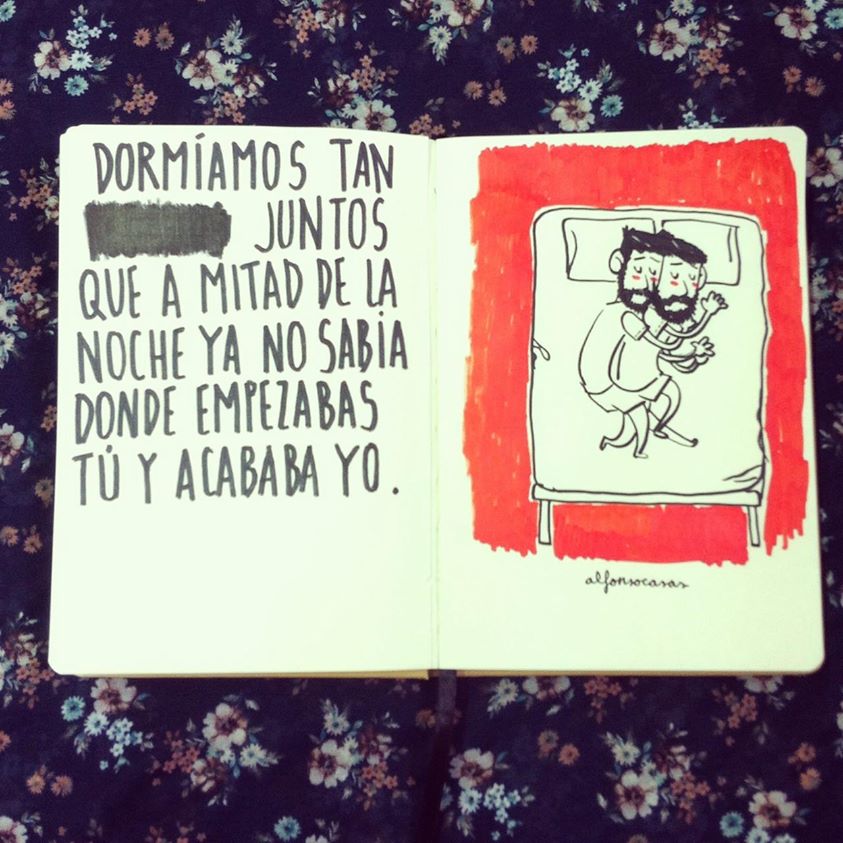 DORMÍAMOS TAN
JUNTOS
QUE A MITAD DE LA
NOCHE YA NO SABÍA
DONDE EMPEZABAS
TÚ Y ACABABA YO.
alfonsocasas